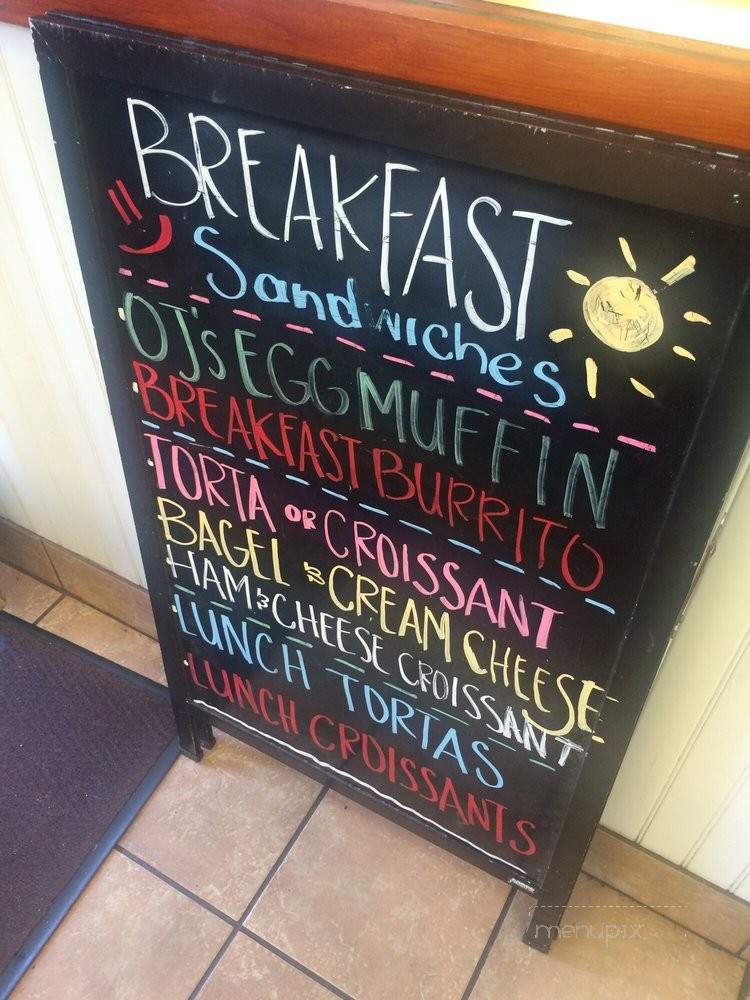 BREAKFAST
Sandwiches
OJ's EGG MUFFIN
BREAKFAST BURRITO
TORTA OR CROISSANT
BAGEL & CREAM CHEESE
HAM & CHEESE CROISSANT
LUNCH TORTAS
LUNCH CROISSANTS
menupix